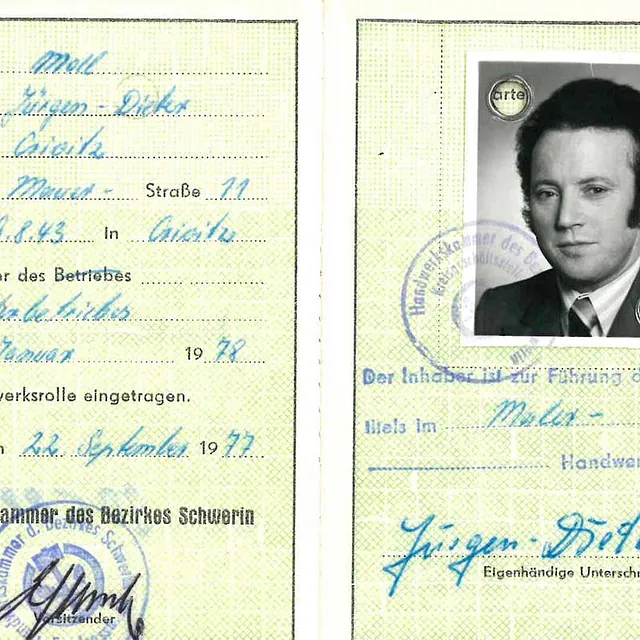 Moll
Jürgen-Dieter
Crivitz
Mauer- Straße 11
.8.43 in Crivitz
er des Betriebes
Januar 1978
werksrolle eingetragen.
n 22. September 1977
ammer des Bezirkes Schwerin
Vorsitzender
arte
Handwerkskammer des Be
Der Inhaber ist zur Führung d
titels im Maler-
Handwer
Jürgen-Diete
Eigenhändige Unterschr